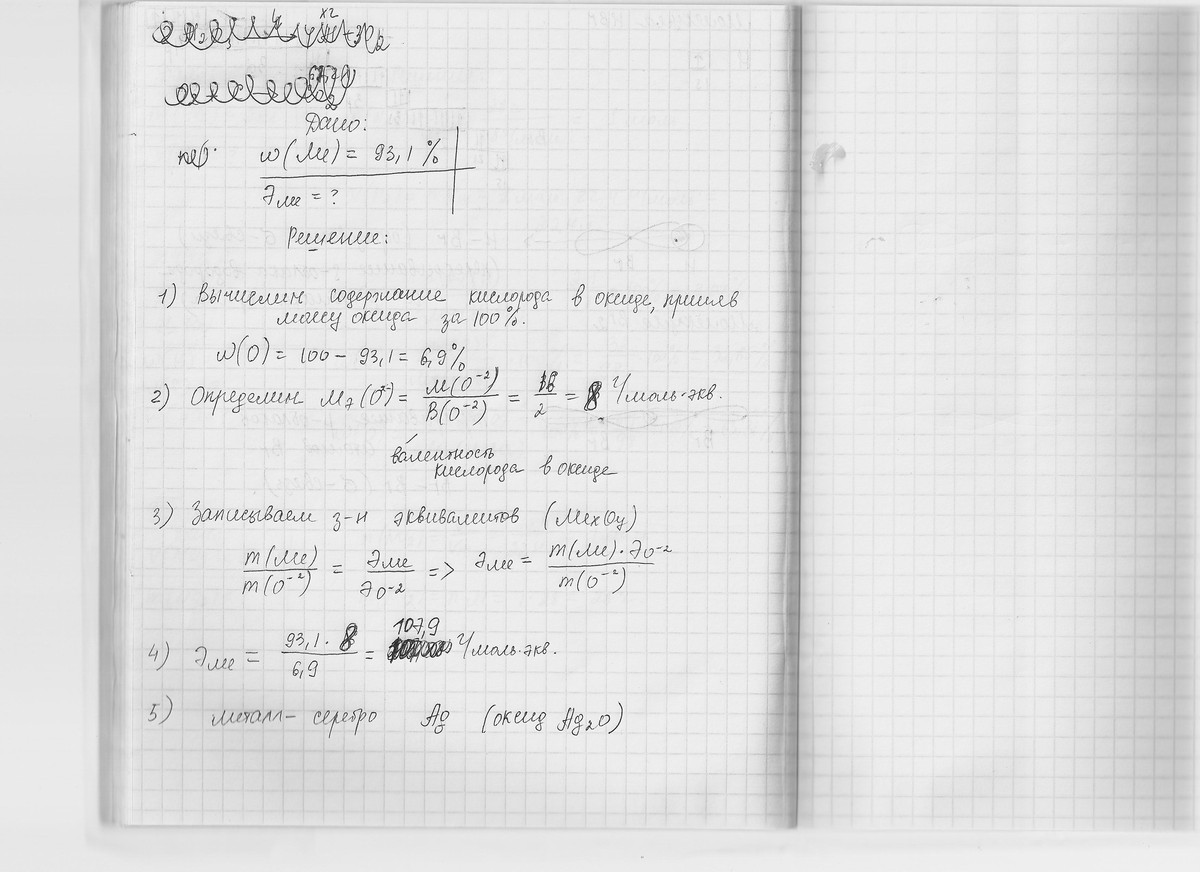 Дано:
w(Me) = 93,1 %
Эме = ?
Решение:
1) Вычислим содержание кислорода в оксиде, приняв
массу оксида за 100%.
w(O) = 100 - 93,1 = 6,9%
2) Определим Mэ(O²⁻) = M(O⁻²)/B(O⁻²) = 16/2 = 8 г/моль·экв.
валентность
кислорода в оксиде
3) Записываем з-н эквивалентов (MexOy)
m(Me)/m(O⁻²) = Эме/Эo⁻² => Эме = m(Me)·Эo⁻²/m(O⁻²)
4) Эме = 93,1·8/6,9 = 107,9 г/моль·экв.
5) металл - серебро Ag (оксид Ag₂O)